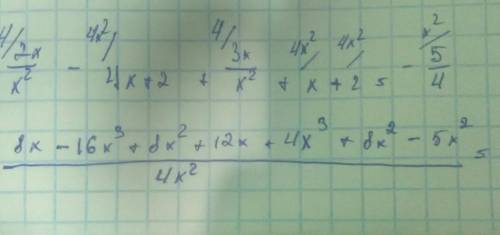 4/ 4x² 4/ 4x² 4x² x²
2x/x² - 4x + 2 + 3x/x² + x + 2 = - 5/4
8x - 16x³ + 8x² + 12x + 4x³ + 8x² - 5x²
4x² =